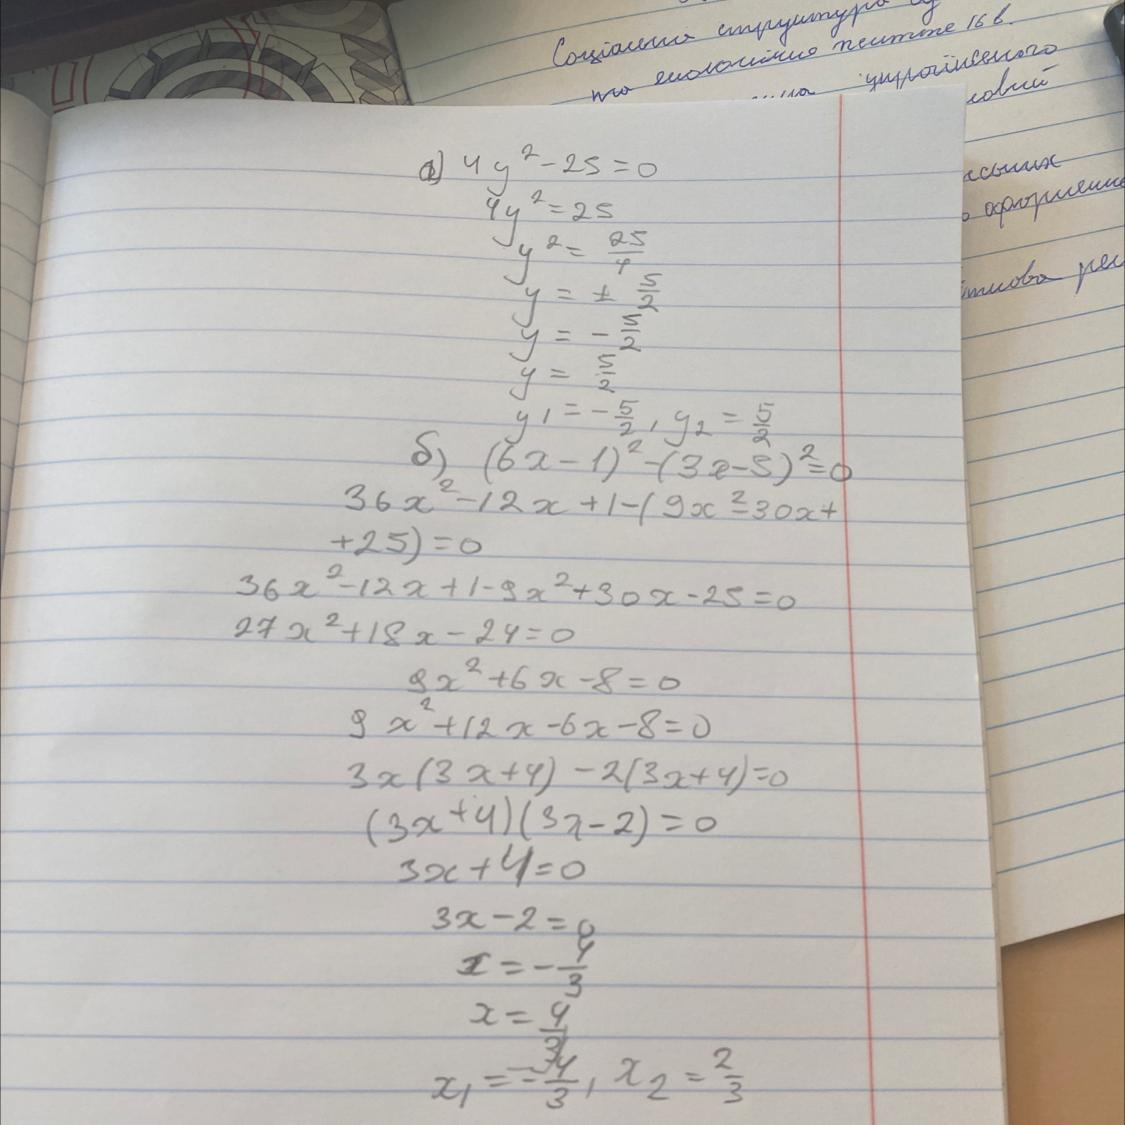 Соціальна структура
та економічне життя 16 в.
українського
а) 4y² - 25 = 0
4y² = 25
y² = 25/4
y = ± 5/2
y = - 5/2
y = 5/2
y1 = - 5/2, y2 = 5/2
б) (6x - 1)² - (3x - 5)² = 0
36x² - 12x + 1 - (9x² - 30x +
+ 25) = 0
36x² - 12x + 1 - 9x² + 30x - 25 = 0
27x² + 18x - 24 = 0
9x² + 6x - 8 = 0
9x² + 12x - 6x - 8 = 0
3x(3x + 4) - 2(3x + 4) = 0
(3x + 4)(3x - 2) = 0
3x + 4 = 0
3x - 2 = 0
x = - 4/3
x = 4/3
x₁ = - 4/3, x₂ = 2/3